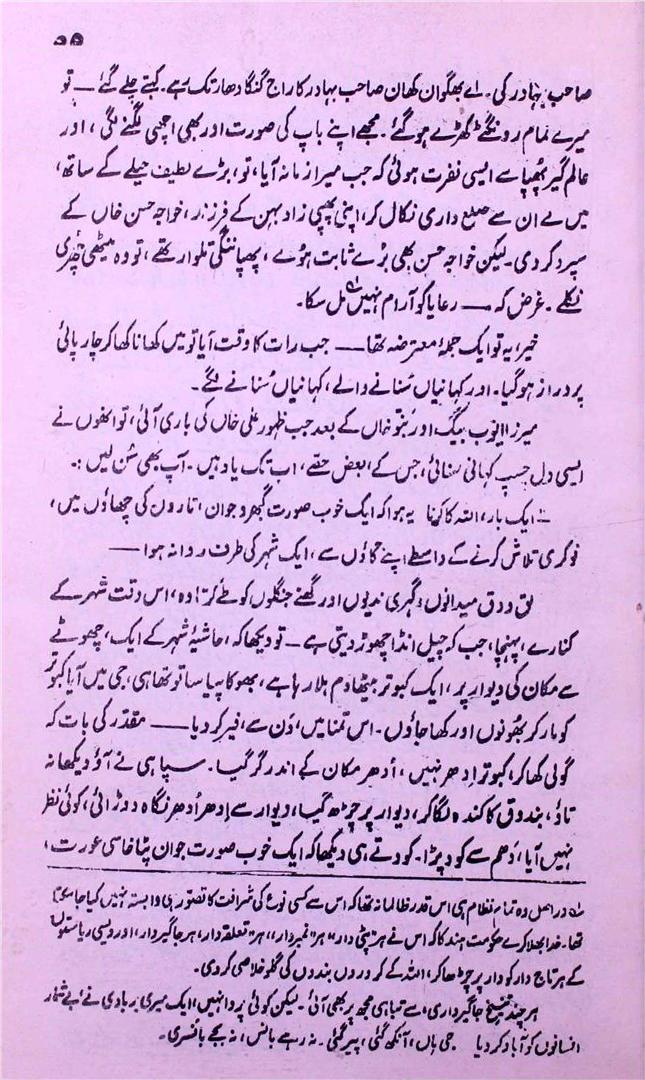 ۵۵
صاحب بہادر کی۔ اے بھگوان کھان صاحب بہادر کا راج گنگا دھار تک رہے۔ کہتے چلے گئے — تو
میرے تمام رونگٹے کھڑے ہو گئے۔ مجھے اپنے باپ کی صورت اور بھی اچھی لگنے لگی، اور
عالمگیر پھپا سے ایسی نفرت ہوئی کہ جب میرا زمانہ آیا، تو، بڑے لطیف حیلے کے ساتھ،
میں نے ان سے ضلع داری نکال کر، اپنی پھپی زاد بہن کے فرزند، خواجہ حسن خاں کے
سپرد کر دی۔ لیکن خواجہ حسن بھی بُرے ثابت ہوئے، پھپا ننگی تلوار تھے، تو وہ میٹھی چھری
نکلے۔ غرض کہ — رعایا کو آرام نہیں مل سکا۔
خیر، یہ تو ایک جملۂ معترضہ تھا — جب رات کا وقت آیا تو میں کھانا کھا کر چارپائی
پر دراز ہو گیا۔ اور کہانیاں سُنانے والے، کہانیاں سُنانے لگے۔
میرزا ایوب بیگ، اور بنّو خاں کے بعد جب ظہور علی خاں کی باری آئی، تو انھوں نے
ایسی دل چسپ کہانی سنائی، جس کے، بعض حصّے، اب تک یاد ہیں۔ آپ بھی سُن لیں :۔
ایک بار، اللہ کا کرنا یہ ہوا کہ ایک خوب صورت گبھرو جوان، تاروں کی چھاؤں میں،
نوکری تلاش کرنے کے واسطے اپنے گاؤں سے، ایک شہر کی طرف روانہ ہوا —
لق و دق میدانوں، گہری ندیوں اور گھنے جنگلوں کو طے کرتا وہ، اس وقت شہر کے
کنارے، پہنچا، جب کہ چیل انڈا چھوڑ دیتی ہے — تو دیکھا کہ، حاشیۂ شہر کے ایک، چھوٹے
سے مکان کی دیوار پر، ایک کبوتر بیٹھا دم ہلا رہا ہے، بھوکا پیاسا تو تھا ہی، جی میں آیا کبوتر
کو مار کر بھُونوں اور کھا جاؤں۔ اس تمنا میں، دَن سے، فیر کر دیا — مقدّر کی بات کہ
گولی کھا کر، کبوتر اِدھر نہیں، اُدھر مکان کے اندر گر گیا۔ سپاہی نے آؤ دیکھا نہ
تاؤ، بندوق کا کندہ لگا کر، دیوار پر چڑھ گیا، دیوار سے اِدھر اُدھر نگاہ دوڑائی، کوئی نظر
نہیں آیا، دَھم سے کود پڑا۔ کودتے ہی دیکھا کہ ایک خوب صورت جوان پٹاخا سی عورت،
دراصل وہ تمام نظام ہی اس قدر ظالمانہ تھا کہ اس سے کسی نوع کی شرافت کا تصوّر ہی وابستہ نہیں کیا جا سکتا
تھا۔ خدا بھلا کرے حکومتِ ہند کا کہ اس نے ہر پٹّی دار، ہر نمبردار، ہر تعلقہ دار، ہر جاگیردار، اور دیسی ریاستوں
کے ہر تاج دار کو دار پر چڑھا کر، اللہ کے کروروں بندوں کی گلو خلاصی کر دی۔
ہر چند تنسیخِ جاگیرداری، سے تباہی مجھ پر بھی آئی۔ لیکن کوئی پروا نہیں، ایک میری بربادی نے بے شمار
انسانوں کو آباد کر دیا جی ہاں، آنکھ گئی، پیر گئی۔ نہ رہے بانس، نہ بجے بانسری۔